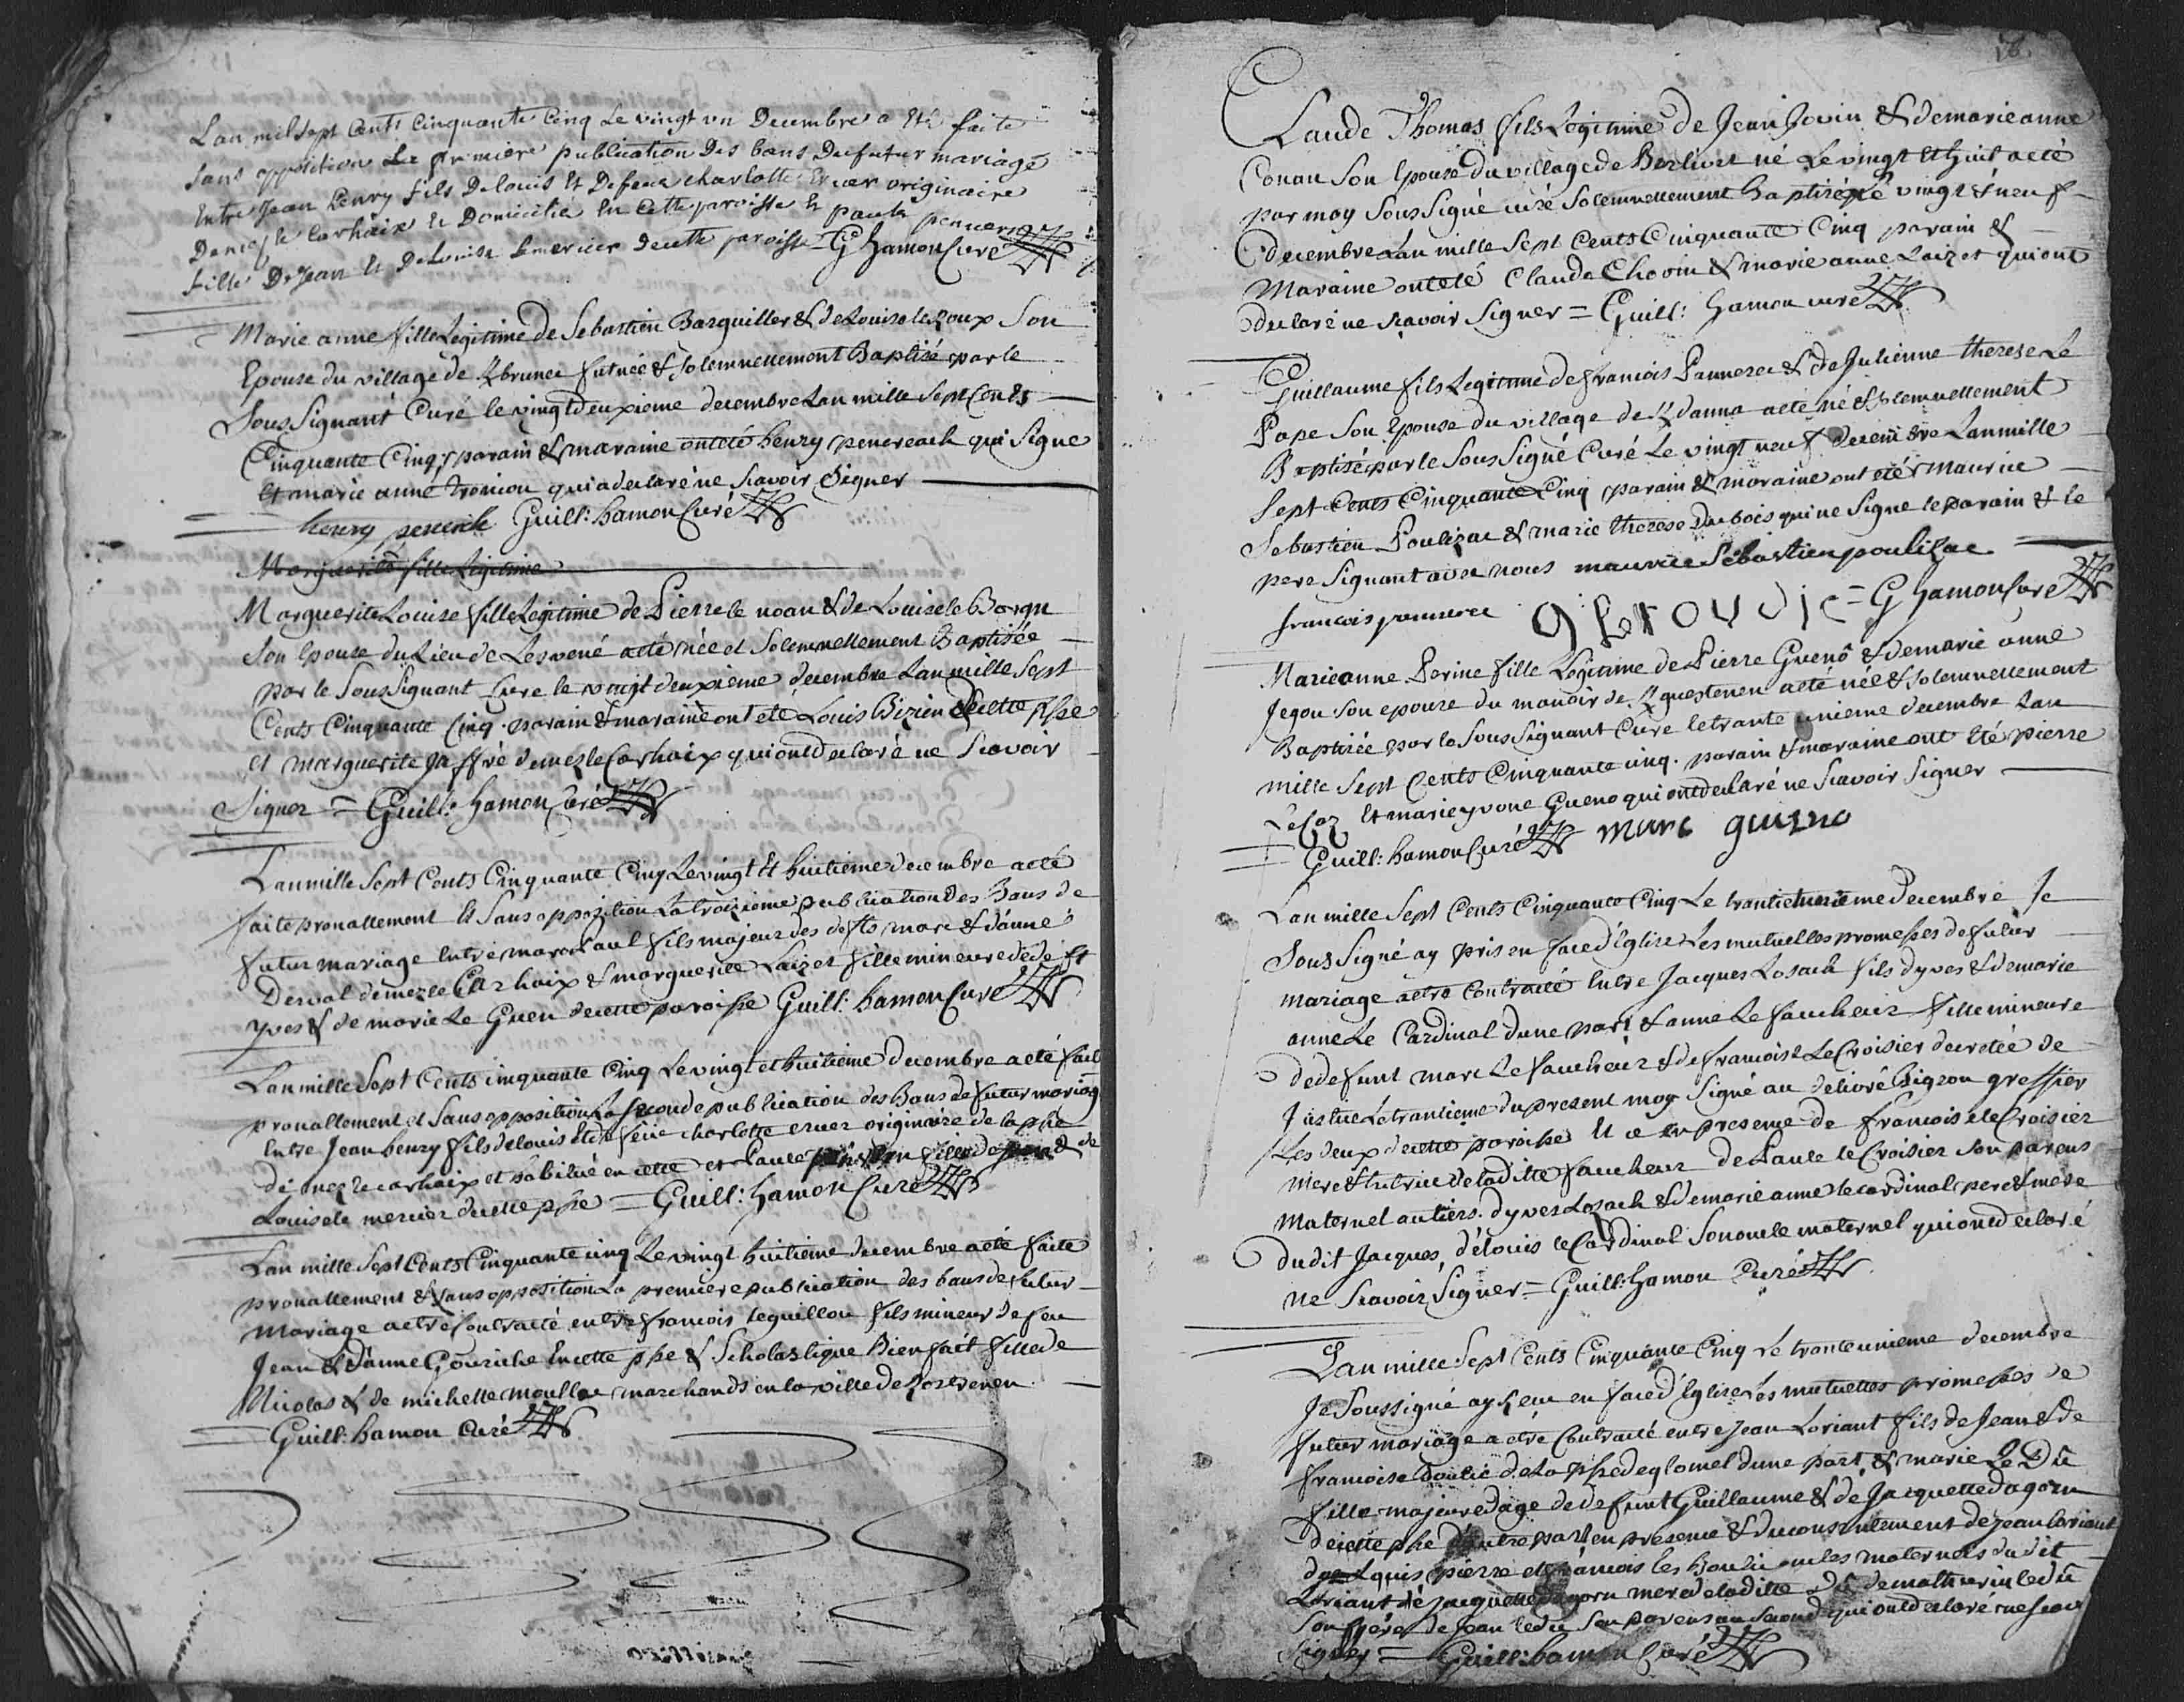 Lan mil sept cents cinquante cinq le vingt un Decembre a Eté faite
sans opposition La premiere publication Des bans Du futur mariage
Entre Jean henry fils Delouis Et Defeue charlotte Ever originaire
Demezle Carhaix Et Domicilié En cette paroisse Et paule
fille De Jean Et DeLouise Lemercier decette paroisse G hamon Curé
Marie anne fille Legitime de Sebastien Basquiller & de Louise le roux Son
Epouse du village de Kbrunec fut née & Solemnellement Baptisé par le
Sous Signant Curé le vingtdeuxieme decembre Lan mille Sept Cents
Cinquante Cinq, parain & maraine ontété henry penereach qui Signe
Et marie anne troniou qui a declaré ne Scavoir Signer
henry Guill: hamon Curé
Marguerite fille Legitime
Marguerite Louise fille Legitime de Pierre le noan & de Louise le Borgn
Son Epouse du Lieu de Lesvené a eté née et Solemnellement Baptisée
par le Sous Signant Cure le vingt deuxieme decembre Lan mille Sept
Cents Cinquante Cinq. parain & maraine ont été Louis Bizien decette psse
et marguerite Jaffré demezle Carhaix qui ont declaré ne Scavoir
Signer = Guill: hamon Curé
Lan mille Sept Cents Cinquante Cinq Le vingt Et huitieme decembre a eté
faite pronallement Et Sans opposition La troisieme publication Des Bans de
futur mariage Entre marc Paul fils majeur des defts marc & d'anne
Derval demezle Carhaix & marguerite Laizet fille mineure dedeft
yves & de marie Le Guen decette paroisse Guill: hamon Curé
Lan mille Sept Cents cinquante Cinq Le vingt et huitieme decembre a eté fait
pronallement et Sans opposition La Seconde publication des Bans de futur mariag
Entre Jean henry fils de louis Et de feüe charlotte ever originaire de la psse
de mezle carhaix et habitué en cette et Paule fille de Jean & de
Louise le mercier decette psse = Guill: hamon Curé
Lan mille Sept Cents Cinquante cinq Le vingt huitieme decembre a eté faite
pronallement & Sans opposition La premiere publication des bans de futur
mariage a etre Contracté entre francois leguillou fils mineur de feu
Jean & D'anne Gouriche En cette psse & Scholastique Bienfait fille de
Nicolas & de michelle moullec marchands en la ville de Rostrenen
Guill: hamon Curé
Claude Thomas fils Legitime de Jean Jouin & de marie anne
Conan Son Epouse du village de Berlivet né Le vingt Et huit a eté
par moy Sous Signé curé Solemnellement baptisé Le vingt & neuf
decembre Lan mille Sept Cents Cinquante Cinq parain &
Maraine ont eté Claude Choein & marie anne Laizet qui ont
declaré ne Scavoir Signer = Guill: hamon curé
Guillaume fils Legitime de francois Pannerec & de Julienne therese Le
Pape Son Epouse du village de Kdanna a eté né & Solemnellement
Baptisé par le Sous Signé Curé Le vingt neuf decembre Lan mille
Sept Cents Cinquante Cinq parain & maraine ont eté Maurice
Sebastien Poulizac & marie therese Dubois qui ne Signe le parain & le
pere Signant avec nous maurice Sebastien poulizac
francois pannerec = G hamon Curé
Marie anne Perine fille Legitime de Pierre Guenô & de marie anne
Jegou Son epouse du manoir de Kquestenen a eté née & Solemnellement
Baptisée par le Sous Signant Curé le trante unieme decembre Lan
mille Sept Cents Cinquante cinq. parain & maraine ont été pierre
Le Coz Et marie yvone Gueno qui ont declaré ne Scavoir Signer
Guill: hamon Curé marc
Lan mille Sept Cents Cinquante Cinq Le trante unieme Decembre Je
Sous Signé ay pris en face d'Eglise Les mutuelles promesses de futur
mariage aetre Contracté Entre Jacques Losach fils d'yves & de marie
anne Le Cardinal d'une part & anne Le faucheur fille mineure
de defunt marc Le faucheur & de francoise Le Croisier decretée de
Justice Le trantieme du present moy Signé au delivré bigeon greffier
Les deux decette paroisse Et ce en presence de francoise le Croisier
mere & tutrice de laditte faucheur de Paule le Croisier Son parens
Maternel autiers. d'yves Losach & de marie anne le cardinal pere & mere
dudit Jacques, de Louis le Cardinal Son oncle maternel qui ont declaré
ne Scavoir Signer = Guill: hamon Curé
Lan mille Sept Cents Cinquante Cinq Le trante unieme decembre
Je Soussigné ay Receu en face d'Eglise Les mutuelles promesses de
futur mariage a etre Contracté entre Jean Loriant fils de Jean & de
francoise Boulic de La psse deglomel dune part & marie Le Dû
fille majeure d'age de defunt Guillaume & de Jacquette dagorn
decette psse d'autre part en presence & du consentement de Jean Loriant
Louis pierre et francois les Boulic oncles maternels du dit
Loriant de Jacquette dagorn mere de laditte Dû de mathurin le dû
Son frere de Jean le dû Son parens au Second qui ont declaré ne Scav
Signer = Guill: hamon Curé